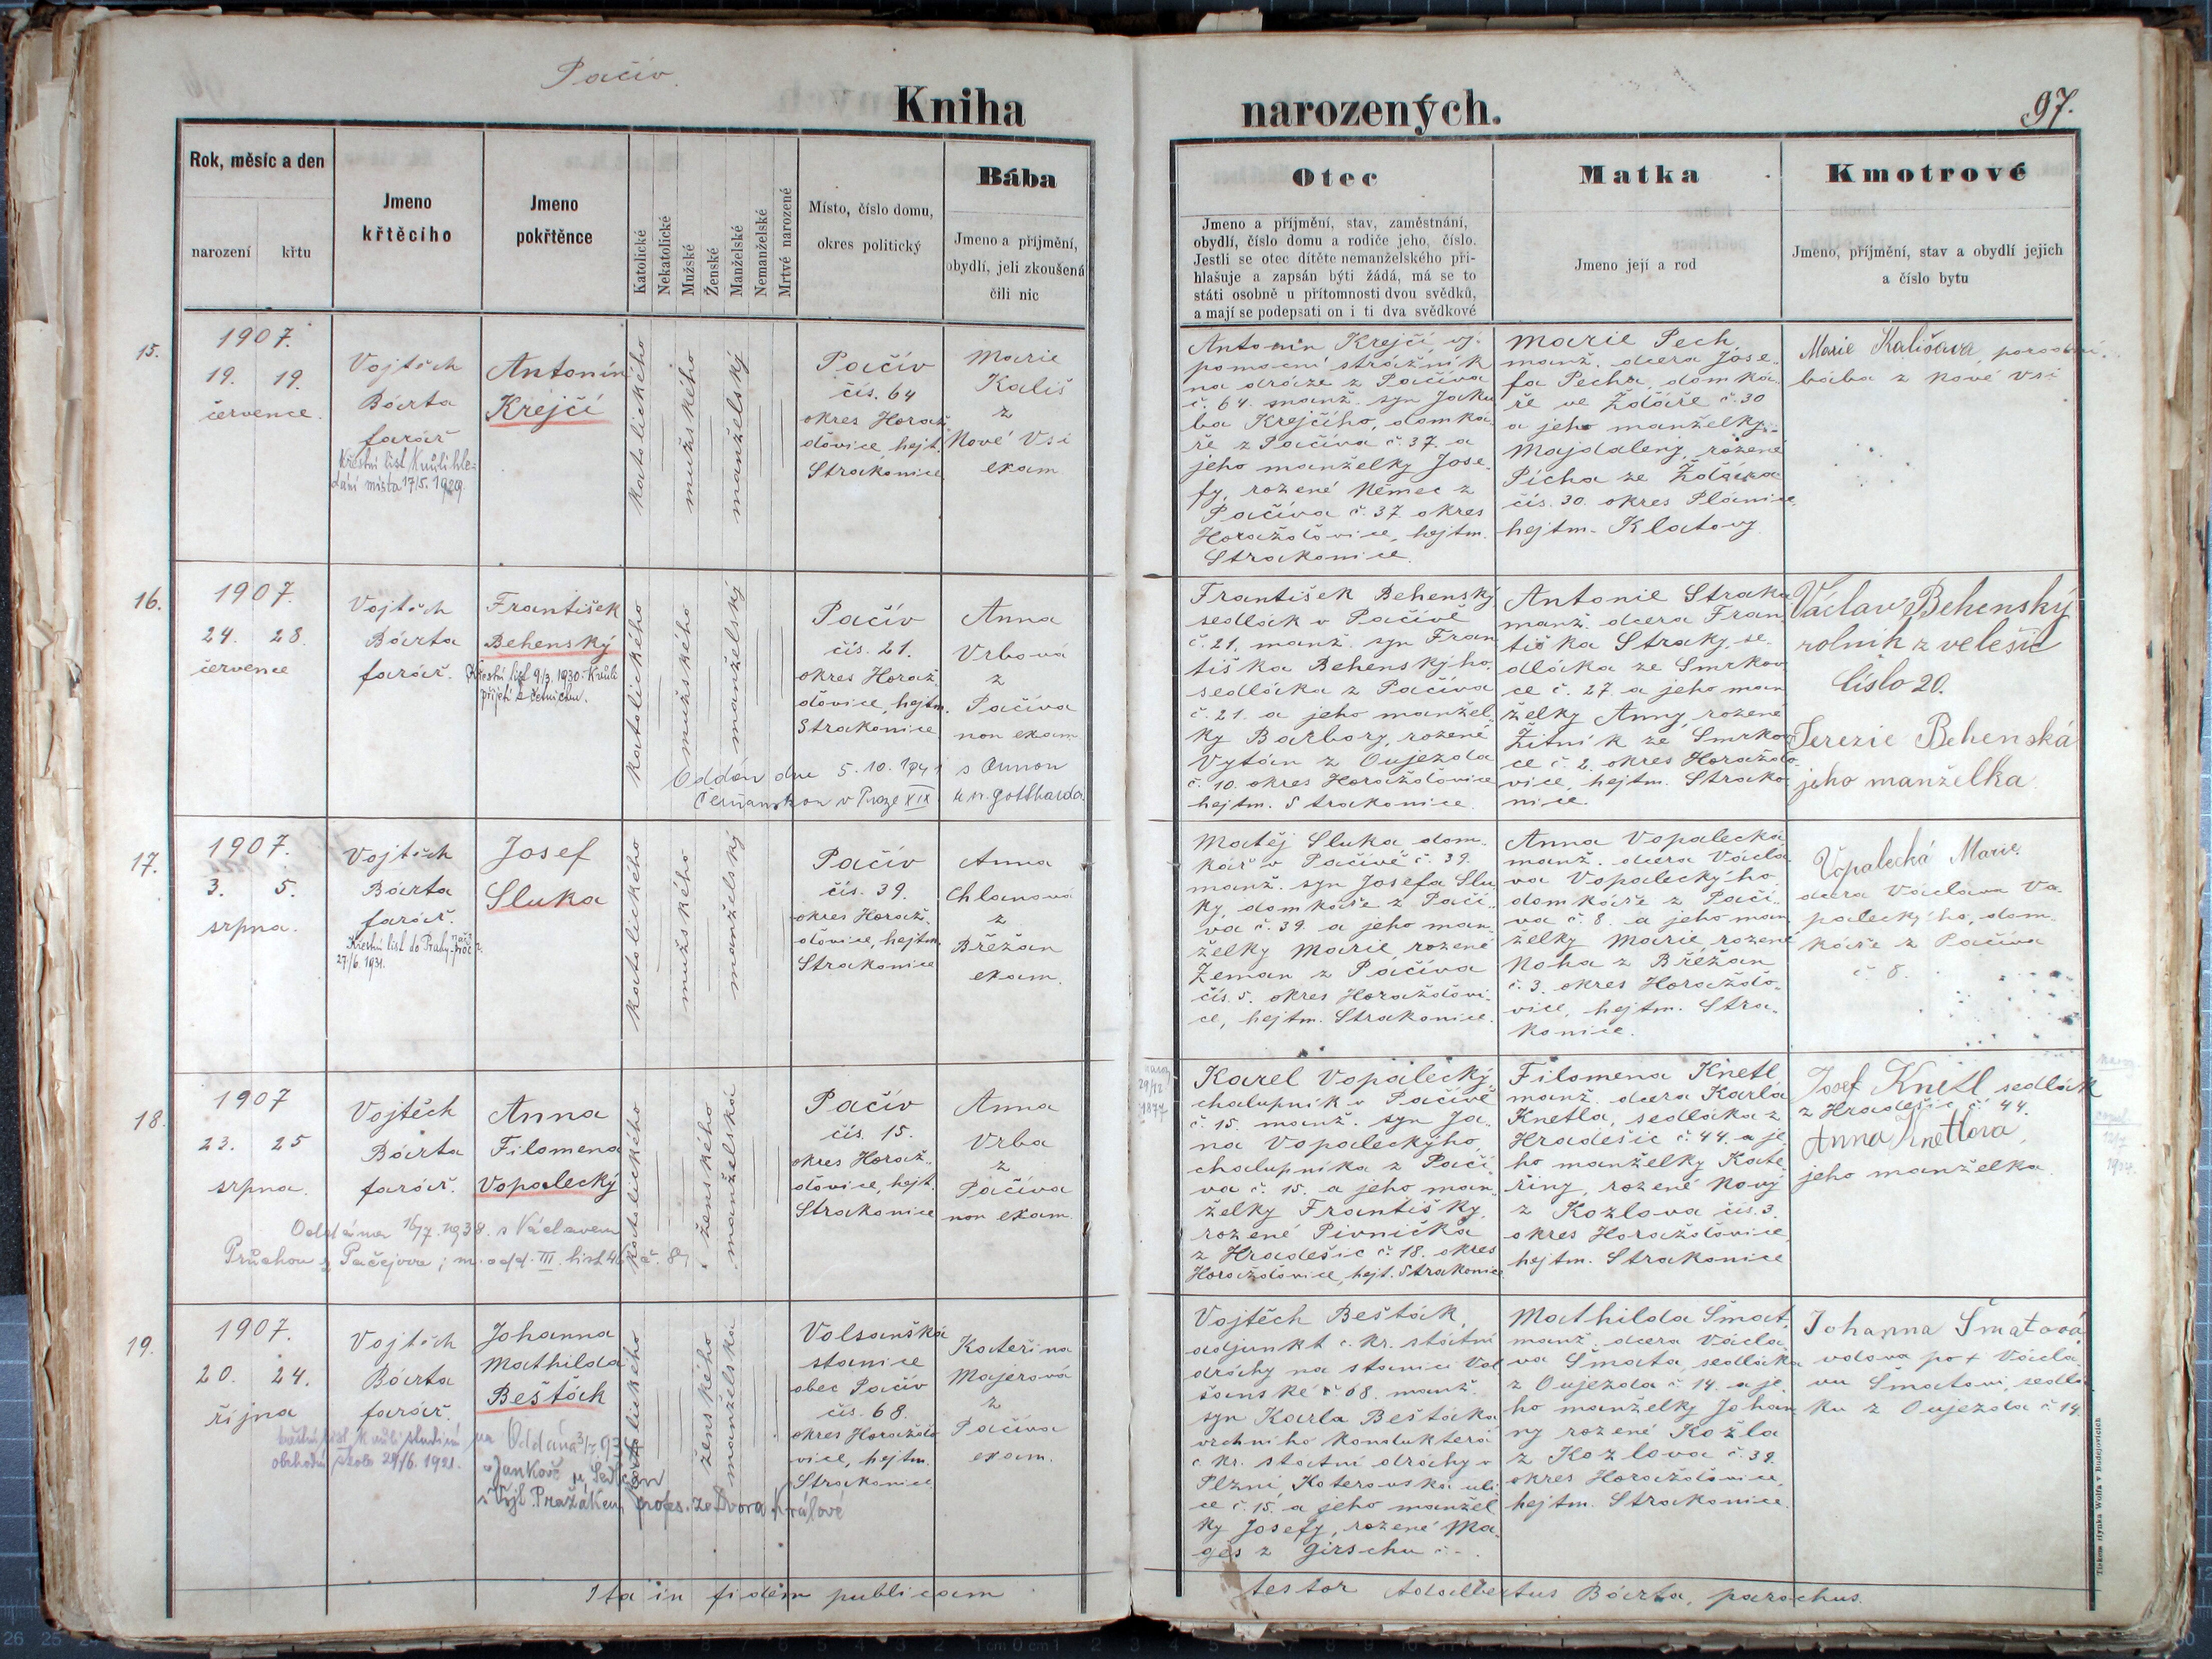 Pačív.
Kniha narozených.
97.
Rok, měsíc a den
narození
křtu
Jmeno
křtěcího
Jmeno
pokřtěnce
Katolické
Nekatolické
Mužské
Ženské
Manželské
Nemanželské
Mrtvé narozené
Místo, číslo domu,
okres politický
Bába
Jmeno a příjmění,
obydlí, jeli zkoušená
čili nic
Otec
Jmeno a příjmění, stav, zaměstnání,
obydlí, číslo domu a rodiče jeho, číslo.
Jestli se otec dítěte nemanželského při-
hlašuje a zapsán býti žádá, má se to
státi osobně u přítomnosti dvou svědků,
a mají se podepsati on i ti dva svědkové
Matka
Jmeno její a rod
Kmotrové
Jmeno, příjmění, stav a obydlí jejich
a číslo bytu
15.
1907.
19. 19.
července.
Vojtěch
Bárta
farář
Křestní list kvůli hle-
dání místa 17/5. 1929.
Antonín
Krejčí
katolického
mužského
manželský
Pačív
čís. 64
okres Horaž
ďovice, hejt.
Strakonice
Marie
Kališ
z
Nové Vsi
exam
Antonín Krejčí,
pomocní strážník
na dráze z Pačíva
č. 64. manž. syn Jaku
ba Krejčího, domká-
ře z Pačíva č. 37. a
jeho manželky Jose-
fy, rozené Němec z
Pačíva č. 37 okres
Horažďovice, hejtm.
Strakonice.
Marie Pech
manž. dcera Jose-
fa Pecha, domká-
ře ve Ždáře č. 30
a jeho manželky
Majdaleny, rozené
Pícha ze Ždára
čís. 30. okres Plánice,
hejtm. Klatovy
Marie Kališova, porodní
bába z Nové Vsi
16.
1907.
24. 28.
července
Vojtěch
Bárta
farář.
František
Behenský
Křestní list 9/3. 1930. Kvůli
přijetí k četnictvu.
katolického
mužského
manželský
Pačív
čís. 21.
okres Horaž
ďovice, hejtm.
Strakonice
Anna
Vrbová
z
Pačíva
non exam
Oddán dne 5. 10. 1941 s Annou
v Praze XIX u sv. Gottharda.
František Behenský
sedlák v Pačívě
č. 21, manž. syn Fran
tiška Behenského,
sedláka z Pačíva
č. 21. a jeho manžel
ky Barbory, rozené
Vytán z Oujezda
č. 10. okres Horažďovice
hejtm. Strakonice.
Antonie Straka
manž. dcera Fran
tiška Straky, se-
dláka ze Smrkov
ce č. 27. a jeho man
želky Anny, rozené
Žitník ze Smrkov
ce č. 2. okres Horažďo-
vice, hejtm. Strako
nice.
Václav Behenský
rolník z Velešic
číslo 20.
Terezie Behenská
jeho manželka
17.
1907.
3. 5.
srpna.
Vojtěch
Bárta
farář.
Křestní list do Prahy
27/6. 1931.
Josef
Sluka
katolického
mužského
manželský
Pačív
čís. 39.
okres Horaž-
ďovice, hejtm.
Strakonice
Anna
Chlanová
z
Břežan
exam.
Matěj Sluka, dom-
kář v Pačívě č. 39.
manž. syn Josefa Slu
ky, domkáře z Pačí-
va č. 39. a jeho man-
želky Marie, rozené
Zeman z Pačíva
čís. 5. okres Horažďovi-
ce, hejtm. Strakonice.
Anna Vopalecká
manž. dcera Václa
va Vopaleckýho
domkáře z Pačí-
va č. 8. a jeho man
želky Marie, rozené
Noha z Břežan
č. 3. okres Horažďo-
vice, hejtm. Stra-
konice.
Vopalecká Marie
dcera Václava Vo-
paleckýho, dom-
káře z Pačíva
č. 8.
18.
1907
23. 25
srpna.
Vojtěch
Bárta
farář.
Anna
Filomena
Vopalecký
katolického
ženského
manželská
Pačív
čís. 15.
okres Horaž-
ďovice, hejt.
Strakonice
Anna
Vrba
z
Pačíva
non exam.
Oddána 16/7. 1938. s Václavem
Průchou z Pačejova; m. odd. III. list 46 č. 8
naroz.
29/12
1877
Karel Vopalecký,
chalupník v Pačívě
č. 15. manž. syn Ja-
na Vopaleckýho,
chalupníka z Pačí-
va č. 15. a jeho man-
želky Františky,
rozené Pivnička
z Hradešic č. 18. okres
Horažďovice, hejt. Strakonice
Filomena Knetl
manž. dcera Karla
Knetla, sedláka z
Hradešic č. 44. a je-
ho manželky Kate-
řiny, rozené Nový
z Kozlova čís. 3.
okres Horažďovice,
hejtm. Strakonice
Josef Knetl sedlák
z Hradešic č. 44.
Anna Knetlova,
jeho manželka
19.
1907.
20. 24.
října
Vojtěch
Bárta
farář.
Johanna
Mathilda
Bešták
katolického
ženského
manželská
Volšanská
stanice
obec Pačív
čís. 68.
okres Horažďo
vice, hejtm.
Strakonice
Kateřina
Majerová
z
Pačíva
exam.
křestní list kvůli studiím na
obchodní škole 29/6. 1921.
Oddána
v Jankově u Sedlčan
s Vojt. Pražákem profes. ze Dvora Králové
Vojtěch Bešták,
adjunkt c. kr. státní
dráhy na stanici Vol
šanské č 68. manž.
syn Karla Beštáka
vrchního konduktéra
c. kr. státní dráhy v
Plzni, Koterovská uli
ce č. 15. a jeho manžel
ky Josefy, rozené Ma-
ges z Girschu č -.
Mathilda Šmat,
manž. dcera Václa-
va Šmata, sedláka
z Oujezda č. 14. a je-
ho manželky Johan
ny rozené Kozla
z Kozlova č. 39.
okres Horažďovice,
hejtm. Strakonice.
Johanna Šmatová
vdova po + Václa-
vu Šmatovi, sedlá
ku z Oujezda č. 14
Ita in fidem publicam testor Adalbertus Bárta, parochus.
Tiskem Hynka Wolfa v Budějovicích